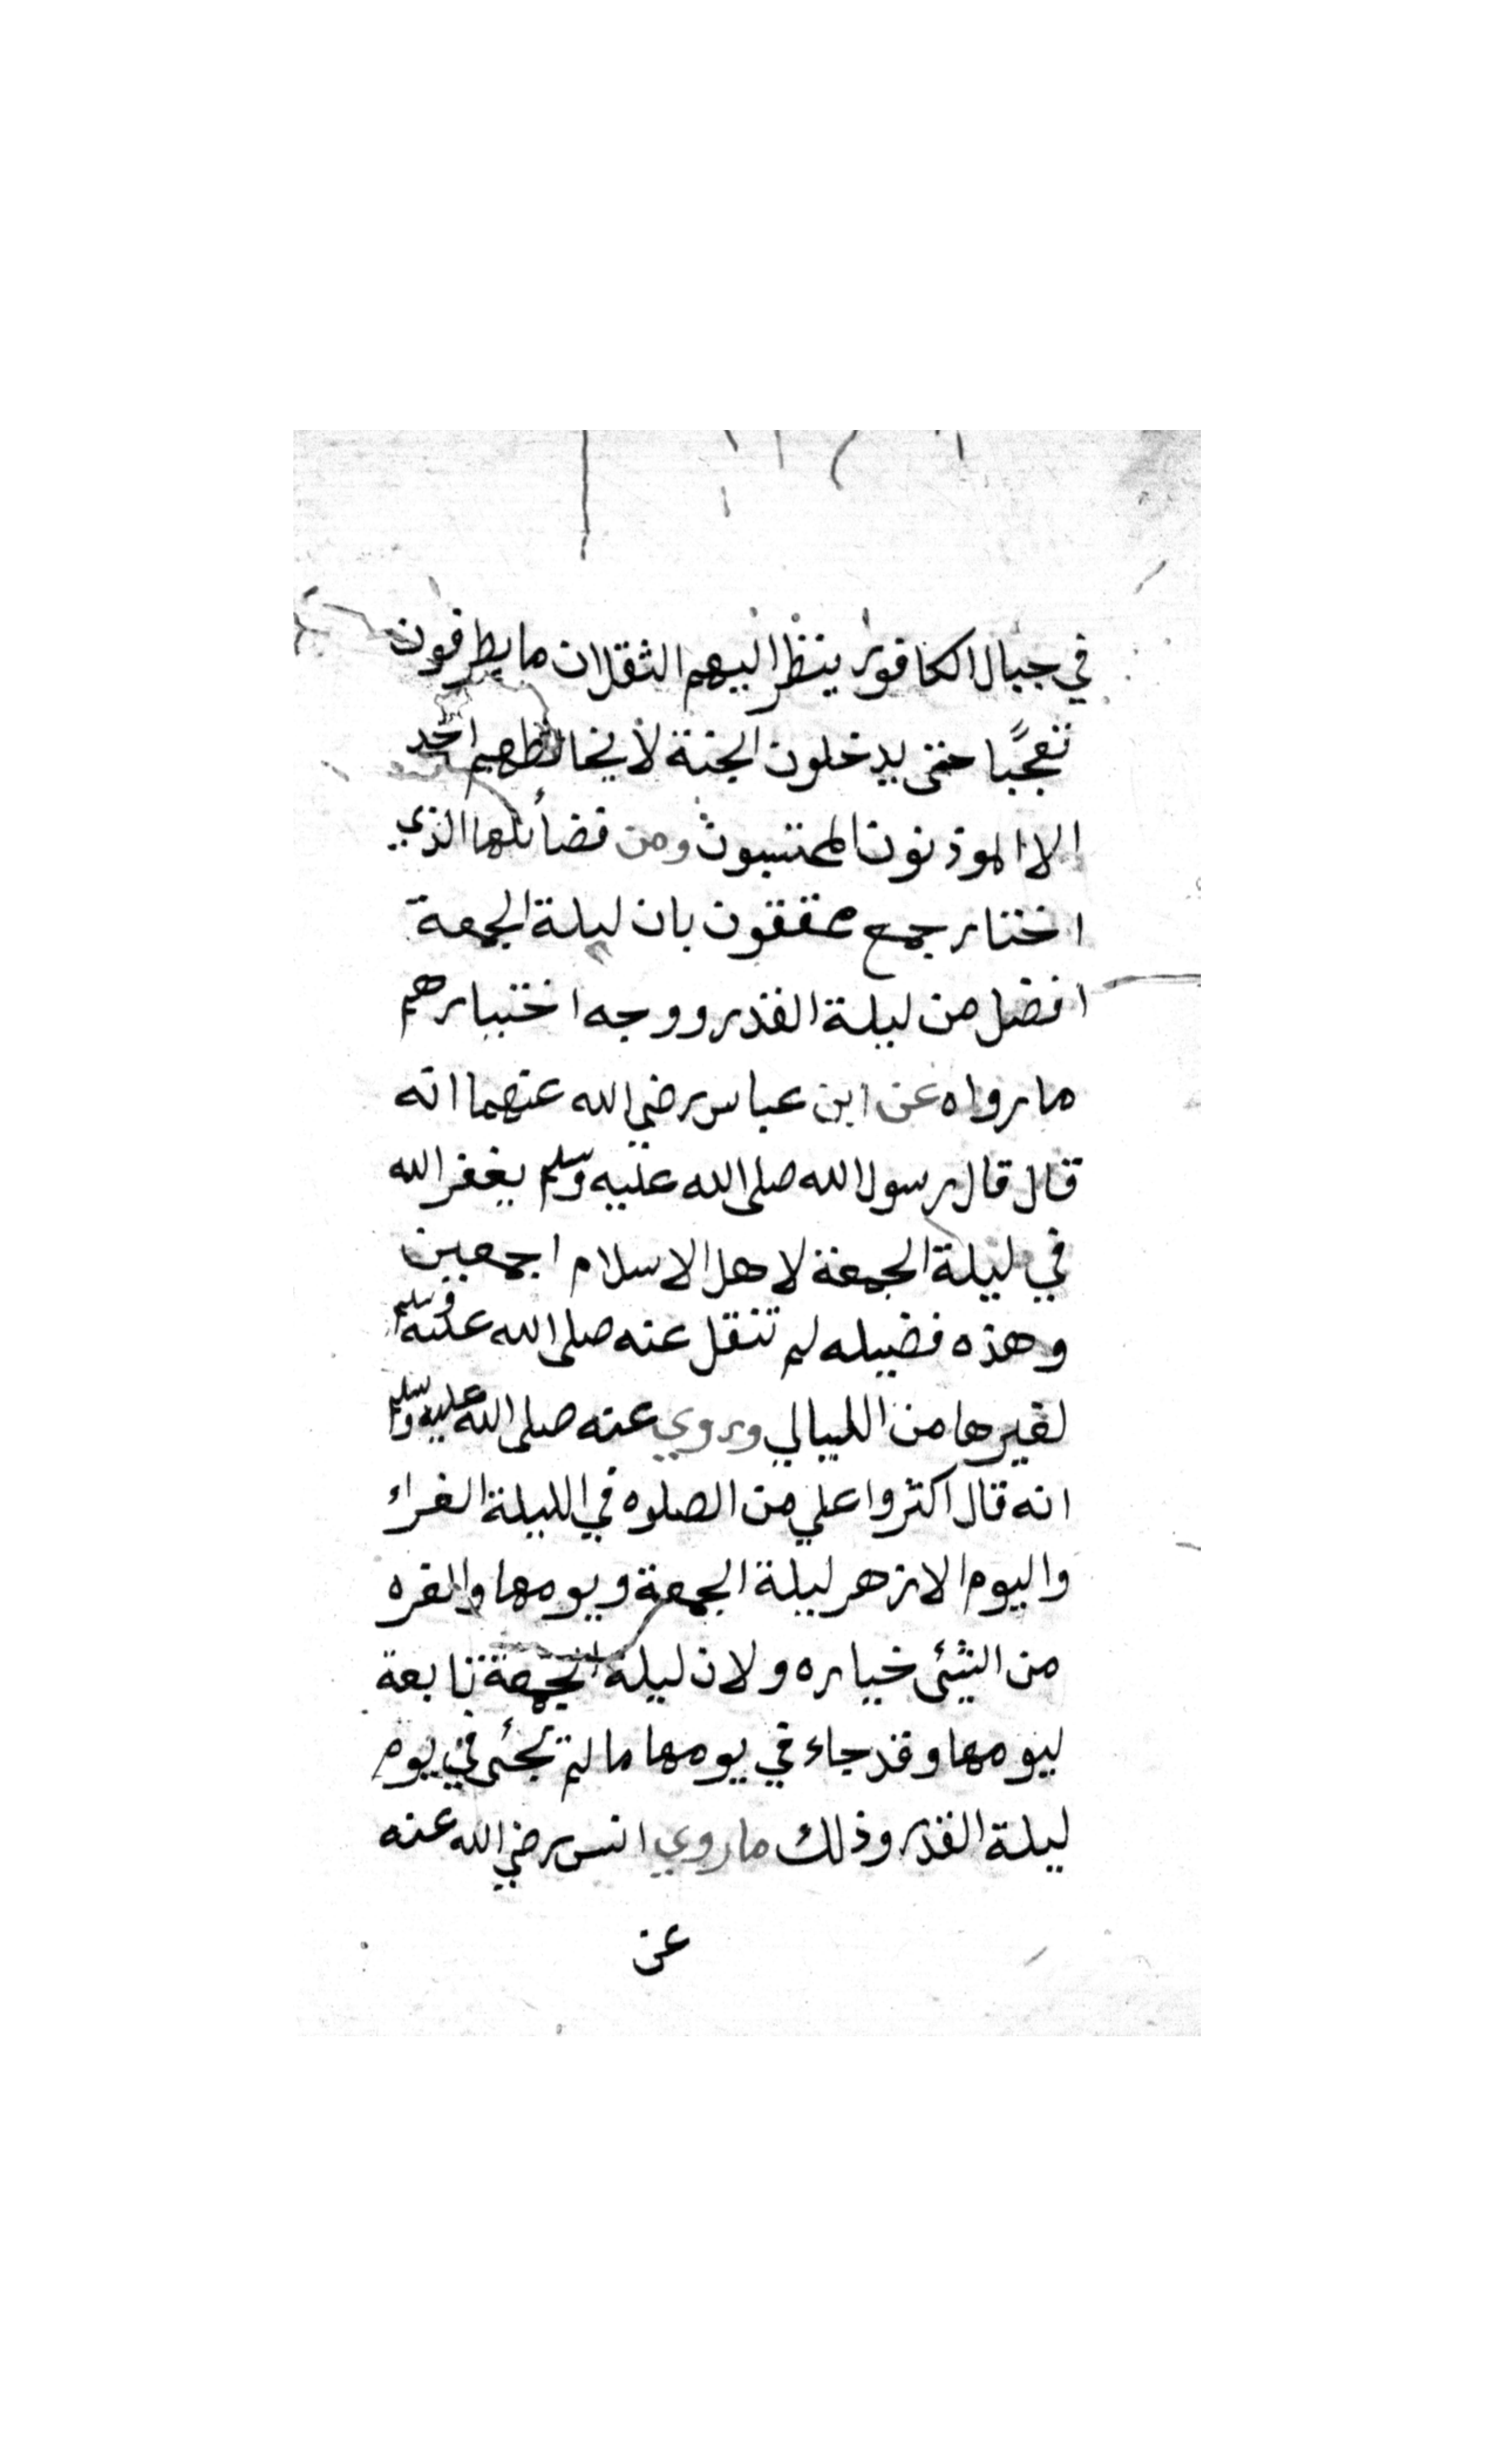 في جبال الكافور ينظر اليهم الثقلان ما يطرفون
تعجبًا حتى يدخلون الجنة لا يخالطهم احد
الا الموذنون المحتسبون ومن فضائلها الذي
اختار جمع محققون بان ليلة الجمعة
افضل من ليلة القدر ووجه اختيارهم
ما رواه عن ابن عباس رضي الله عنهما انه
قال قال رسول الله صلى الله عليه وسلم يغفر الله
في ليلة الجمعة لاهل الاسلام اجمعين
وهذه فضيله لم تنقل عنه صلى الله عليه وسلم
لغيرها من الليالي وروي عنه صلى الله عليه وسلم
انه قال اكثروا علي من الصلوه في الليلة الغراء
واليوم الازهر ليلة الجمعة ويومها والغره
من الشئى خياره ولان ليلة الجمعة تابعة
ليومها وقد جاء في يومها ما لم تجئى في يوم
ليلة القدر وذلك ما روي انس رضي الله عنه
عن